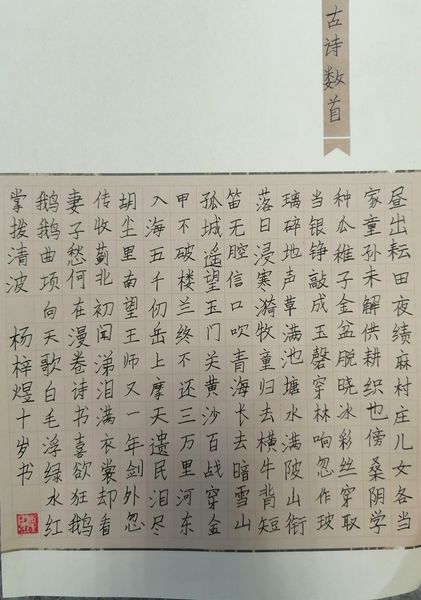 古诗数首
昼出耘田夜绩麻村庄儿女各当
家童孙未解供耕织也傍桑阴学
种瓜稚子金盆脱晓冰彩丝穿取
当银铮敲成玉磬穿林响忽作玻
璃碎地声草满池塘水满陂山衔
落日浸寒漪牧童归去横牛背短
笛无腔信口吹青海长去暗雪山
孤城遥望玉门关黄沙百战穿金
甲不破楼兰终不还三万里河东
入海五千仞岳上摩天遗民泪尽
胡尘里南望王师又一年剑外忽
传收蓟北初闻涕泪满衣裳却看
妻子愁何在漫卷诗书喜欲狂鹅
鹅鹅曲项向天歌白毛浮绿水红
掌拨清波 杨梓煜十岁书